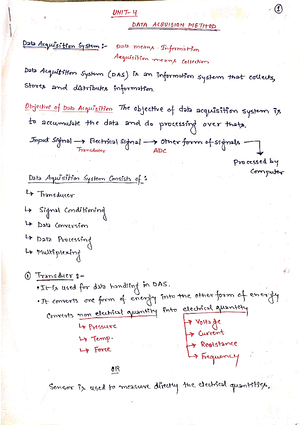 ①
UNIT-4
DATA ACQUISION METHOD
Data Acquisition System :- Data means Information
Acquisition means Collection
Data Acquisition System (DAS) is an information system that collects,
stores and distributes information.
Objective of Data Acquisition The objective of data acquisition system is
to accumulate the data and do processing over thats.
Input Signal → Electrical Signal → Other form of signals
Transducer ADC
Processed by
Computer
Data Acquisition System Consists of :
↳ Transducer
↳ Signal Conditioning
↳ Data Conversion
↳ Data Processing
↳ Multiplexing
① Transducer :-
• It is used for data handling in DAS.
• It converts one form of energy into the other form of energy
Converts non electrical quantity into electrical quantity
↳ Pressure → Voltage
↳ Temp. → Current
↳ Force → Resistance
→ Frequency
OR
Sensor is used to measure directly the electrical quantities.